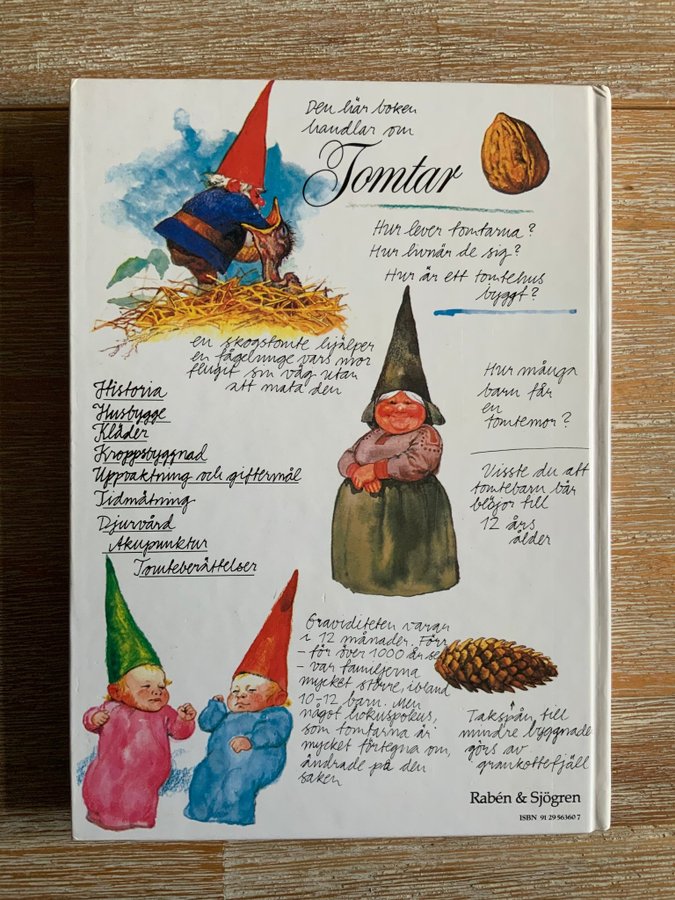 Den här boken
handlar om
Tomtar
Hur lever tomtarna?
Hur livnär de sig?
Hur är ett tomtehus
byggt?
en skogstomte hjälper
en fågelunge vars mor
flugit sin väg utan
att mata den
Historia
Husbygge
Kläder
Kroppsbyggnad
Uppvaktning och giftermål
Tidmätning
Djurvård
Akupunktur
Tomteberättelser
Hur många
barn får
en
tomtemor?
Visste du att
tomtebarn bär
blöjor till
12 års
ålder
Graviditeten varar
i 12 månader. Förr
- för över 1000 år se-
- var familjerna
mycket större, ibland
10-12 barn. Men
något hokuspokus,
som tomtarna är
mycket förtegna om,
ändrade på den
saken
Takspån till
mindre byggnader
görs av
grankottefjäll
Rabén & Sjögren
ISBN 91 29 56360 7